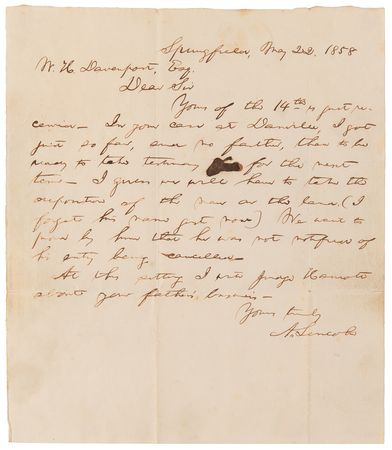 Springfield, May 22, 1858
W. H. Davenport, Esq.
Dear Sir
Yours of the 14th is just re-
ceived— In your case at Danville, I got
just so far, and no farther, than to be
ready to take testimony for the next
term— I guess we will have to take the
deposition of the man on the land (I
forget his name just now) We want to
prove by him that he was not notified of
his entry being cancelled—
At this sitting I write Judge
about your father's business—
Yours truly
A. Lincoln